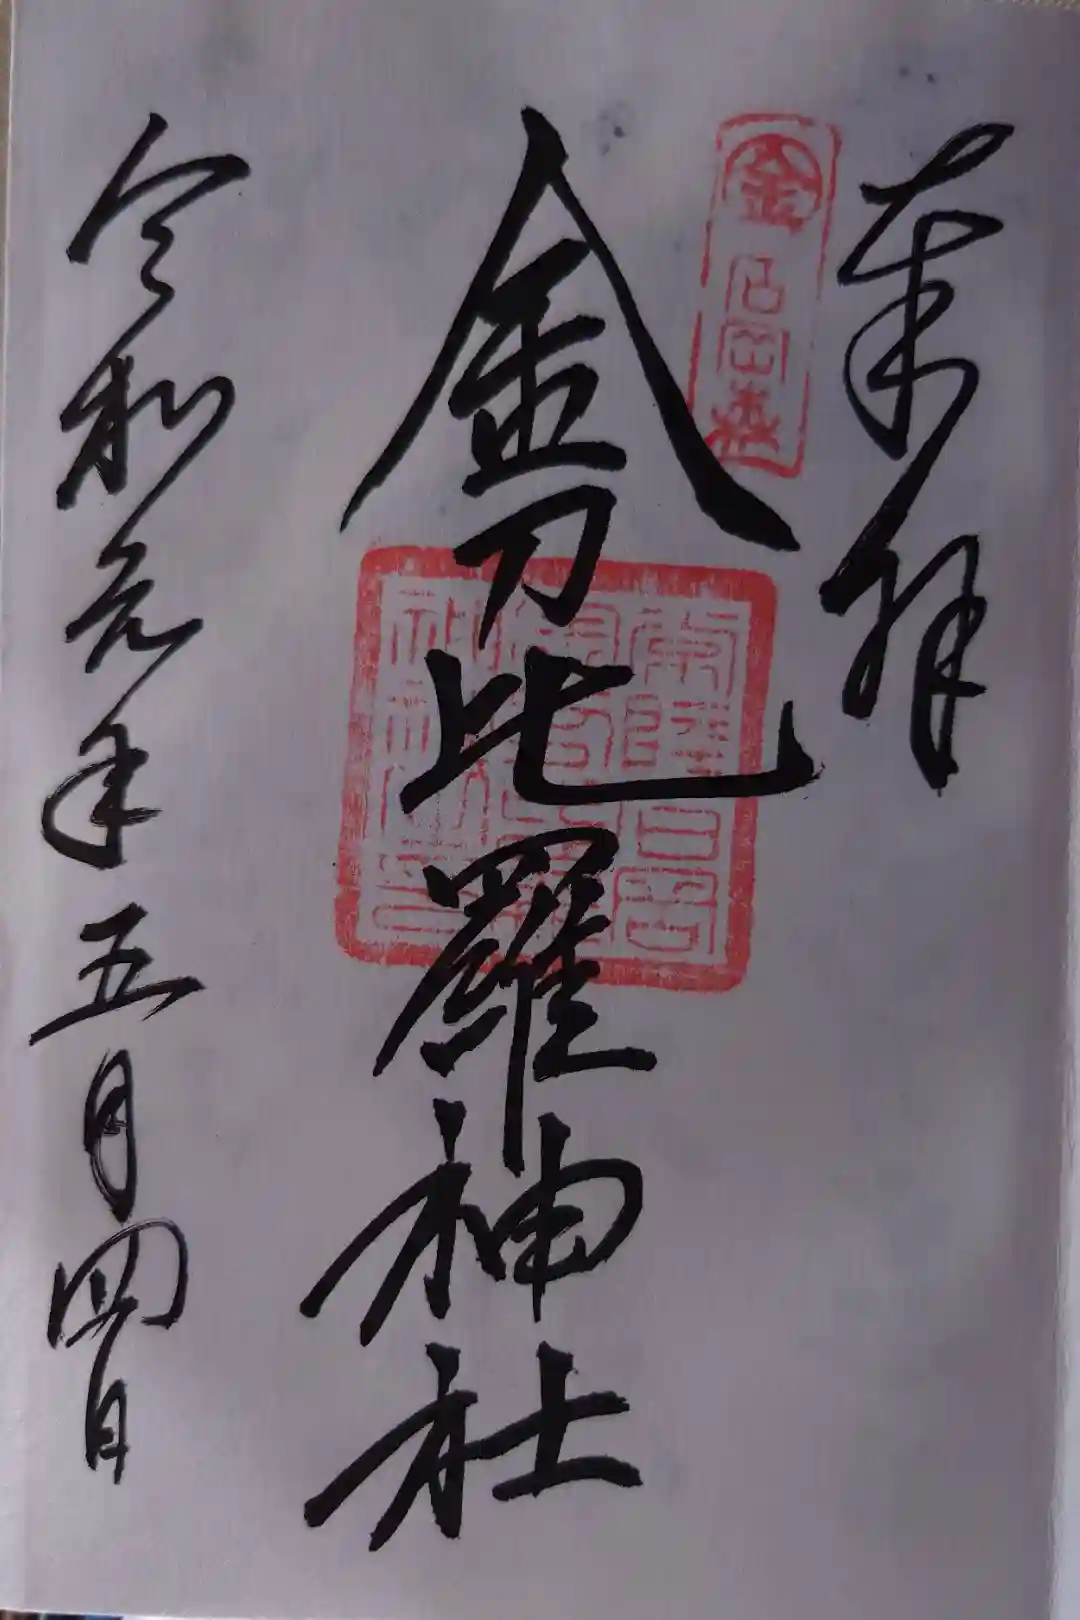 奉拝
金 石岡 森
金刀比羅神社
令和元年五月四日